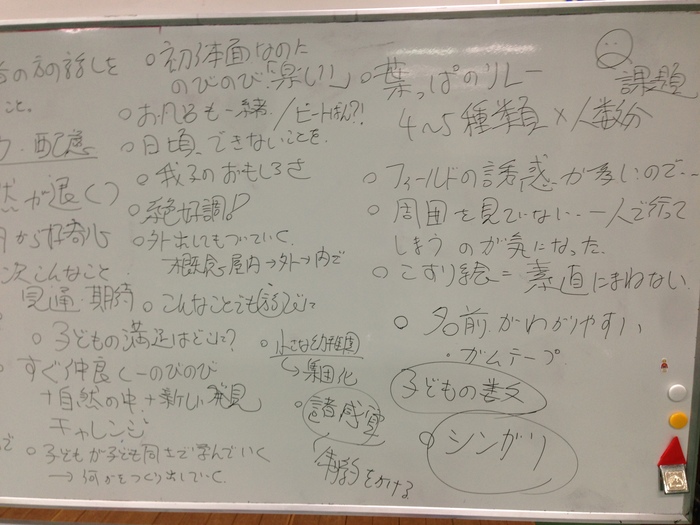 の方の話しを
こと。
配慮
が退く
から好奇心
次こんなこと
見通・期待
○初体面なのに
のびのび「楽しい」
○お凡るも一緒
○日頃、できないことを
○我子のおもしろさ
○絶好調!
○外出してもついていく
概念屋内→外→内で
○こんなことも遊びに
○子どもの満足はどこに?
すぐ仲良く−のびのび
+自然の中+新しい発見
チャレンジ
○子どもが子ども同士で学んでいく
→何かをつくり出していく
○小さな幼稚園
集団化
○諸感覚
をかける
課題
○葉っぱのリレー
4〜5種類×人数分
○フィールドの誘惑が多いので‥
○周囲を見ていない‥一人で行って
しまうのが気になった
○こすり絵=素直にまねない
○名前がわかりやすい
・ガムテープ
子どもの
○シンガリ